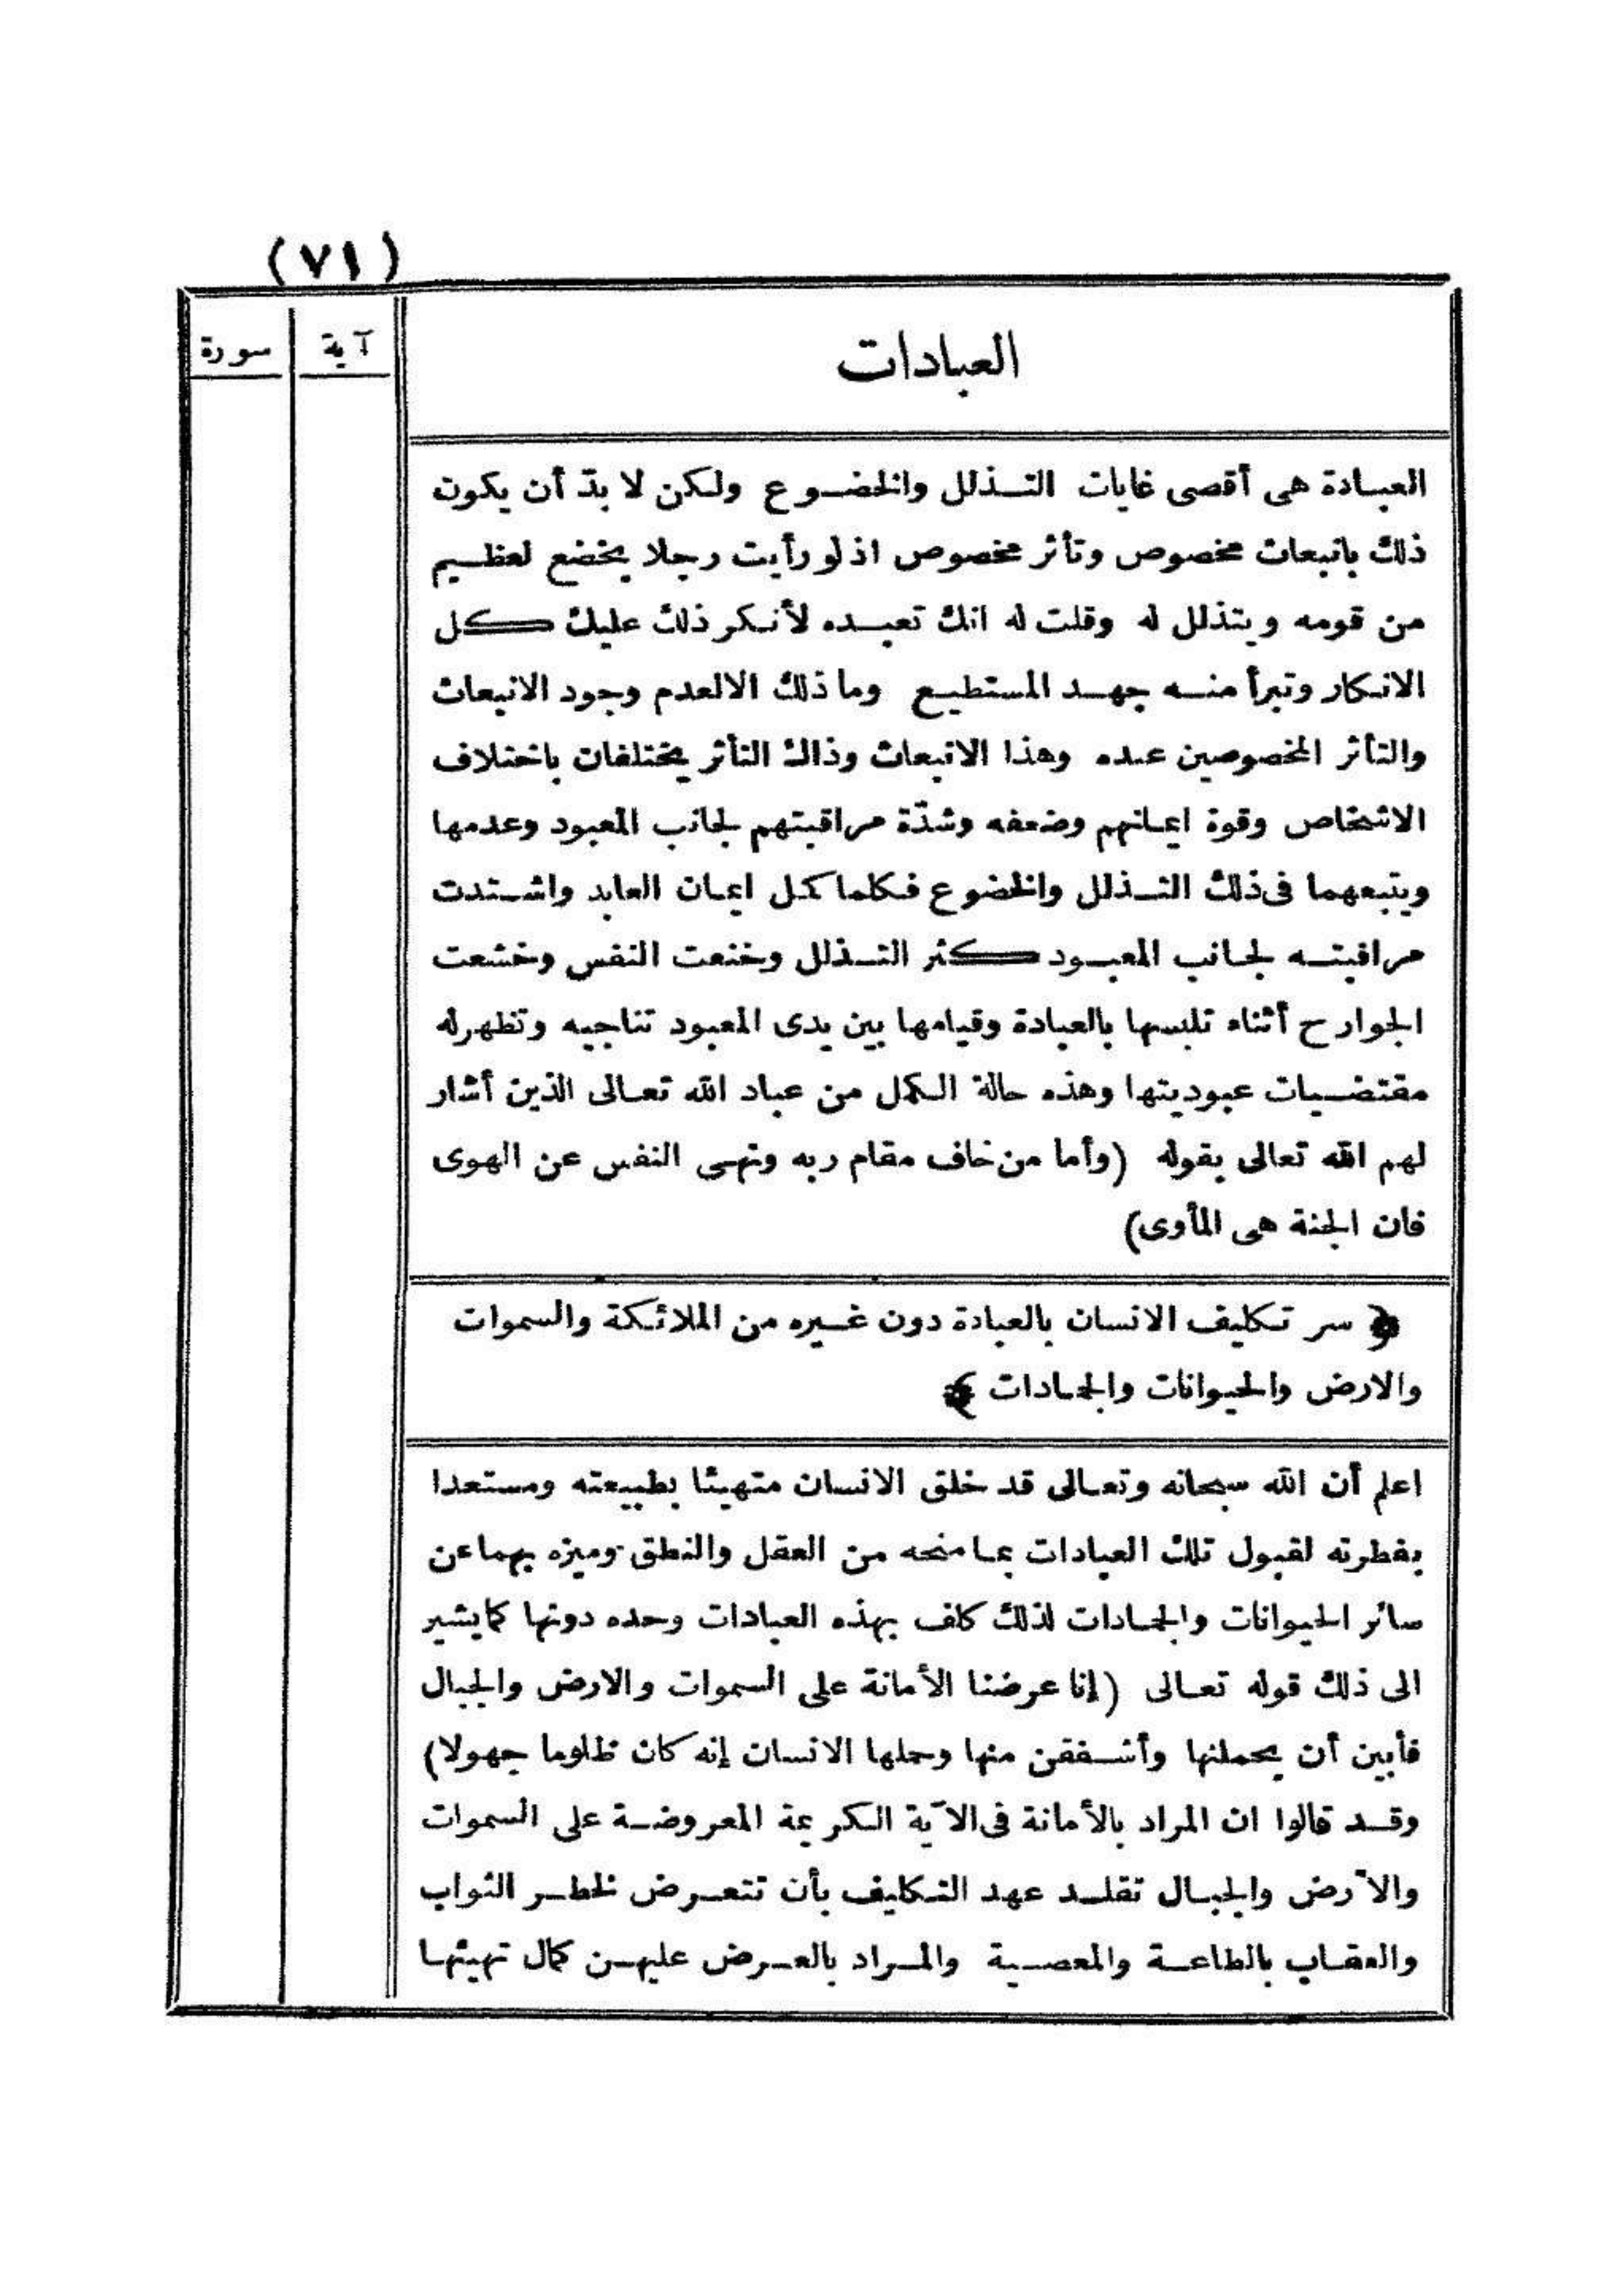 (٧١)
العبادات
آية
سورة
العبادة هى أقصى غايات التذلل والخضوع ولكن لا بدّ أن يكون
ذلك بانبعاث مخصوص وتأثر مخصوص اذ لو رأيت رجلا يخضع لعظيم
من قومه ويتذلل له وقلت له انك تعبده لأنكر ذلك عليك كل
الانكار وتبرأ منه جهد المستطيع وما ذلك الا لعدم وجود الانبعاث
والتأثر المخصوصين عنده وهذا الانبعاث وذاك التأثر يختلفان باختلاف
الاشخاص وقوة ايمانهم وضعفه وشدّة مراقبتهم لجانب المعبود وعدمها
ويتبعهما فى ذلك التذلل والخضوع فكلما كمل ايمان العابد واشتدت
مراقبته لجانب المعبود كثر التذلل وخنعت النفس وخشعت
الجوارح أثناء تلبسها بالعبادة وقيامها بين يدى المعبود تناجيه وتظهر له
مقتضيات عبوديتها وهذه حالة الكمل من عباد الله تعالى الذين أشار
لهم الله تعالى بقوله (وأما من خاف مقام ربه ونهى النفس عن الهوى
فان الجنة هى المأوى)
﴿ سر تكليف الانسان بالعبادة دون غيره من الملائكة والسموات
والارض والحيوانات والجمادات ﴾
اعلم أن الله سبحانه وتعالى قد خلق الانسان متهيئا بطبيعته ومستعدا
بفطرته لقبول تلك العبادات بما منحه من العقل والنطق وميزه بهما عن
سائر الحيوانات والجمادات لذلك كلف بهذه العبادات وحده دونها كما يشير
الى ذلك قوله تعالى (إنا عرضنا الأمانة على السموات والارض والجبال
فأبين أن يحملنها وأشفقن منها وحملها الانسان إنه كان ظلوما جهولا)
وقد قالوا ان المراد بالأمانة فى الآية الكريمة المعروضة على السموات
والأرض والجبال تقلد عهد التكليف بأن تتعرض لخطر الثواب
والعقاب بالطاعة والمعصية والمراد بالعرض عليهن كمال تهيئها